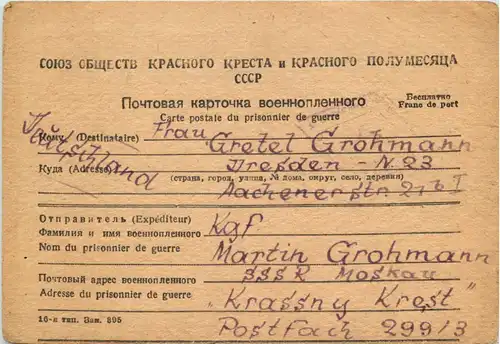 СОЮЗ ОБЩЕСТВ КРАСНОГО КРЕСТА и КРАСНОГО ПОЛУМЕСЯЦА
СССР
Бесплатно
Почтовая карточка военнопленного
Franc de port
Carte postale du prisonnier de guerre
Кому (Destinataire) Frau Gretel Grohmann
Deutschland
Dresden - N. 23
Куда (Adresse)
(страна, город, улица, № дома, округ, село, деревня)
Aachenerstr. 21b I
Отправитель (Expéditeur) Kgf
Фамилия и имя военнопленного
Nom du prisonnier de guerre Martin Grohmann
Почтовый адрес военнопленного SSSR Moskau
Adresse du prisonnier de guerre "Krassny Krest"
16-я тип. Зак. 895 Postfach 299/3